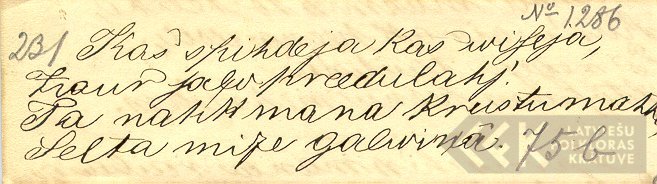 № 1286
231 Kas spihdeja kas wiseja,
zaur sato kreedulahj.
Ta nahk mana Kreistumaht,
Selta mize galwinā. 75b
LATVIEŠU
FOLKLORAS
KRĀTUVE